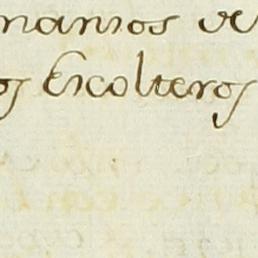 manios de
os Escolteros